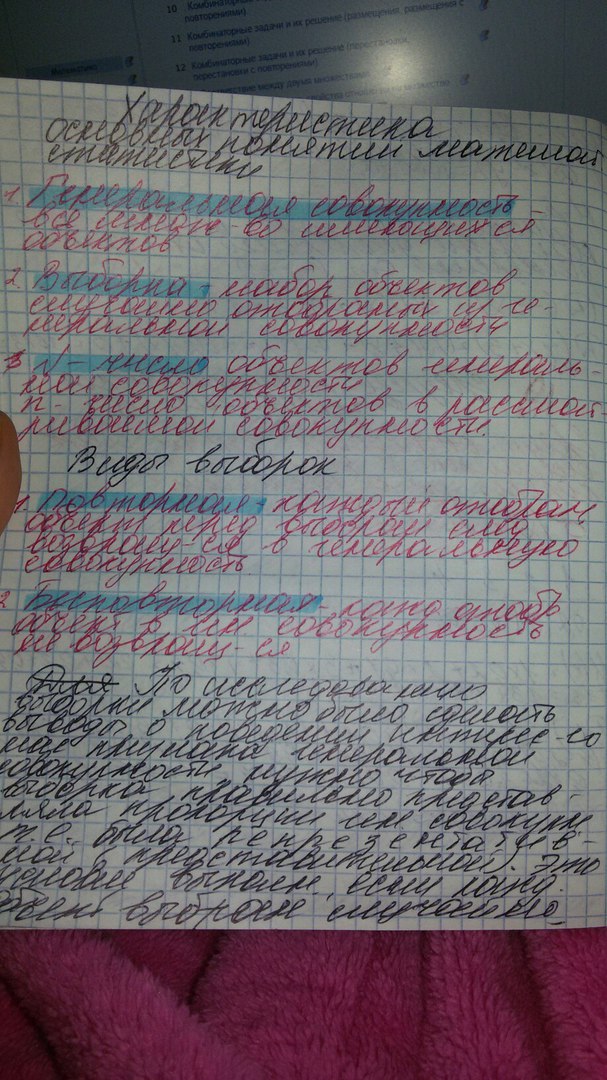 10 Комбинаторные задачи и их решение (размещения, размещения с
повторениями)
11 Комбинаторные задачи и их решение (перестановки,
перестановки с повторениями)
Математика
12
между двумя множествами
Характеристика
основных понятий математ
статистики
1. Генеральная совокупность
все множ-во имеющихся
объектов
2. Выборка - набор объектов
случайно отобраных из ге-
неральной совокупности
3 N - число объектов генераль-
ной совокупности
n - число объектов в рассмат-
риваемой совокупности.
Виды выборок
1. повторная - каждый отобран
объект перед выбором след
возвращ-ся в генеральную
совокупность
2 Бесповторная - кажд отобр
объект в ген. совокупность
не возвращ-ся
По исследованию
выборки можно было сделать
выводы о поведении интересс-го
нас признака генеральной
совокупности, нужно чтобы
выборка правильно представ-
ляла пропорции ген. совокупн
т.е. была репрезентатив-
ной (представительной). Это
условие выполн. если кажд.
объект выбран случайно